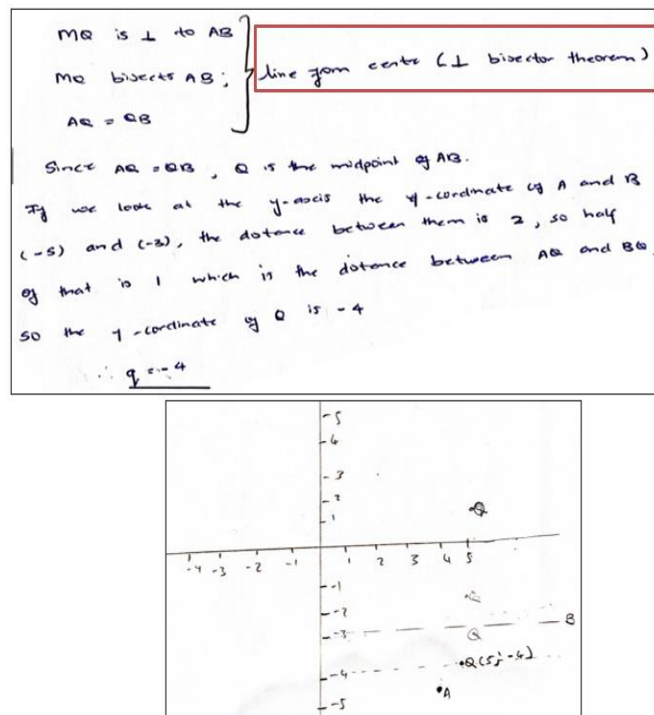 MQ is ⊥ to AB
MQ bisects AB;
AQ = QB
line from centr (⊥ bisector theorem)
Since AQ = QB, Q is the midpoint of AB.
If we look at the y-axis the y-cordinate of A and B
(-5) and (-3), the distence between them is 2, so half
of that is 1 which is the distence between AQ and BQ.
so the y-cordinate of Q is -4
∴ q = -4
5
4
3
2
1
-4 -3 -2 -1 1 2 3 4 5
-1
-2
-3
B
Q
-4
Q(5;-4)
A
-5